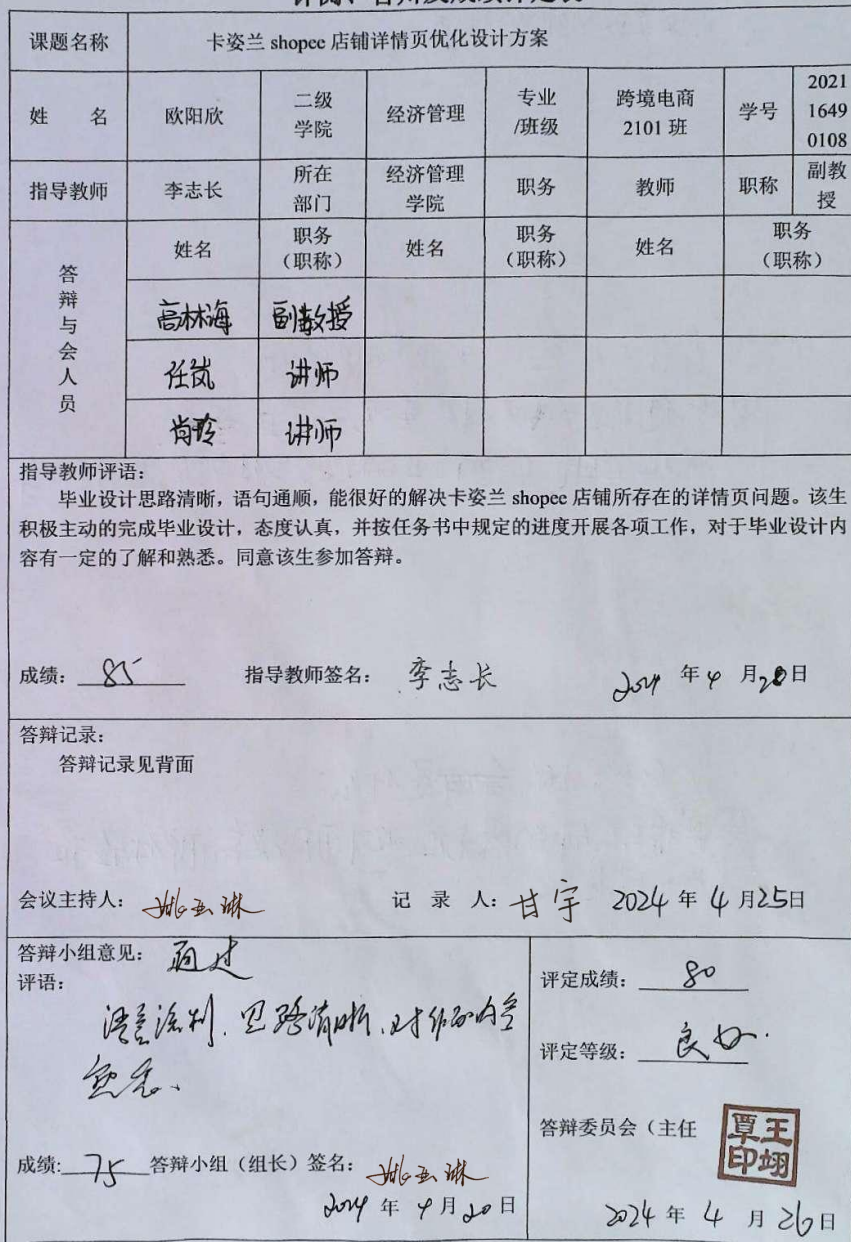 课题名称 卡姿兰 shopee 店铺详情页优化设计方案
姓 名 欧阳欣 二级学院 经济管理 专业/班级 跨境电商 2101 班 学号 2021 1649 0108
指导教师 李志长 所在部门 经济管理学院 职务 教师 职称 副教授
答辩与会人员 姓名 职务（职称） 姓名 职务（职称） 姓名 职务（职称）
高林海 副教授
任岚 讲师
肖玲 讲师
指导教师评语：
毕业设计思路清晰，语句通顺，能很好的解决卡姿兰 shopee 店铺所存在的详情页问题。该生
积极主动的完成毕业设计，态度认真，并按任务书中规定的进度开展各项工作，对于毕业设计内
容有一定的了解和熟悉。同意该生参加答辩。
成绩： 85 指导教师签名： 李志长 2024 年 4 月 20 日
答辩记录：
答辩记录见背面
会议主持人： 姚亚琳 记 录 人： 甘宇 2024 年 4 月 25 日
答辩小组意见： 通过
评语：
语言流利、思路清晰、对作品内容
熟悉、
成绩: 75 答辩小组（组长）签名： 姚亚琳
2024 年 4 月 20 日
评定成绩： 80
评定等级： 良好.
答辩委员会（主任
覃王印翊
2024 年 4 月 26 日